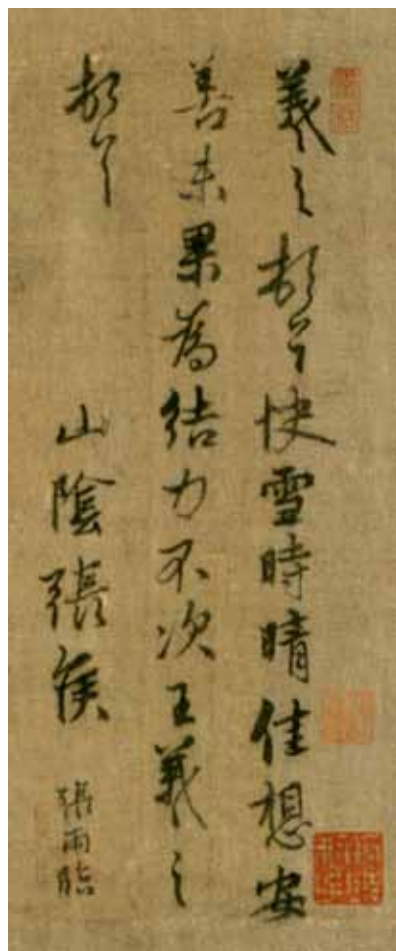 羲之頓首快雪時晴佳想安
善未果為結力不次王羲之
頓首
山陰張侯
張雨臨